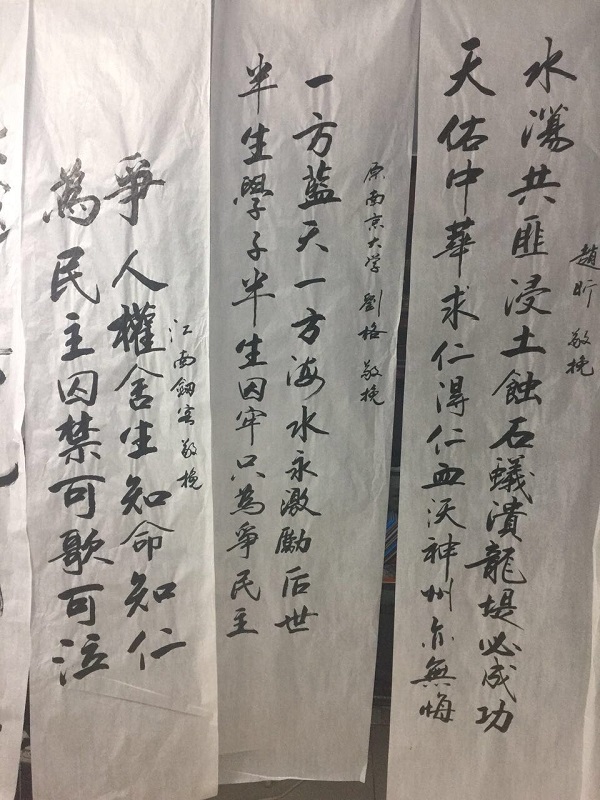 趙昕 敬挽
水共匪浸土蝕石蟻潰龍堤必成功
天佑中華求仁得仁血沃神州亦無悔
原南京大学 劉格 敬挽
一方藍天一方海水永激勵后世
半生學子半生囚牢只為爭民主
江南劍客 敬挽
爭人權舍生知命知仁
為民主囚禁可歌可泣